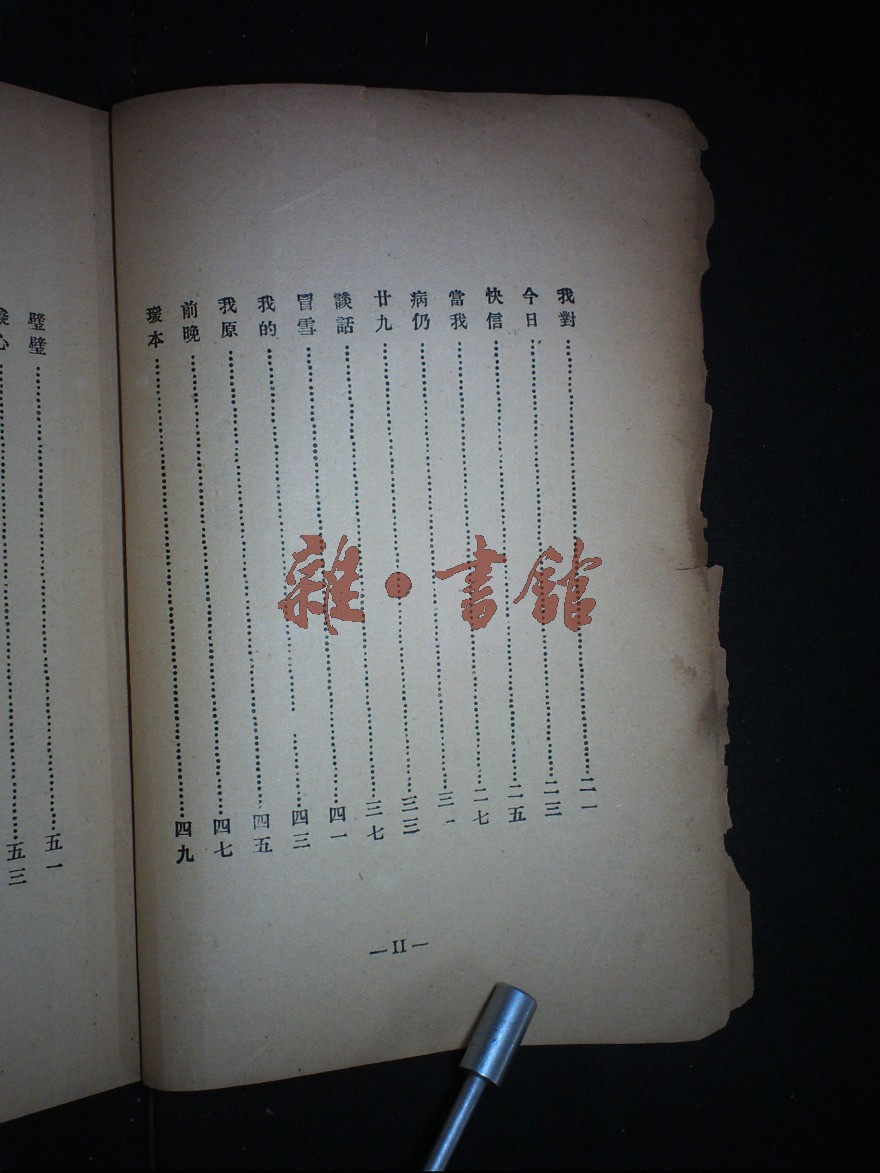 我對……二一
今日……二三
快信……二五
當我……二七
病仍……三一
廿九……三三
談話……三七
冒雪……四一
我的……四三
我原……四五
前晚……四七
瑗本……四九
—II—
璧璧……五一
心……五三
雜·書館